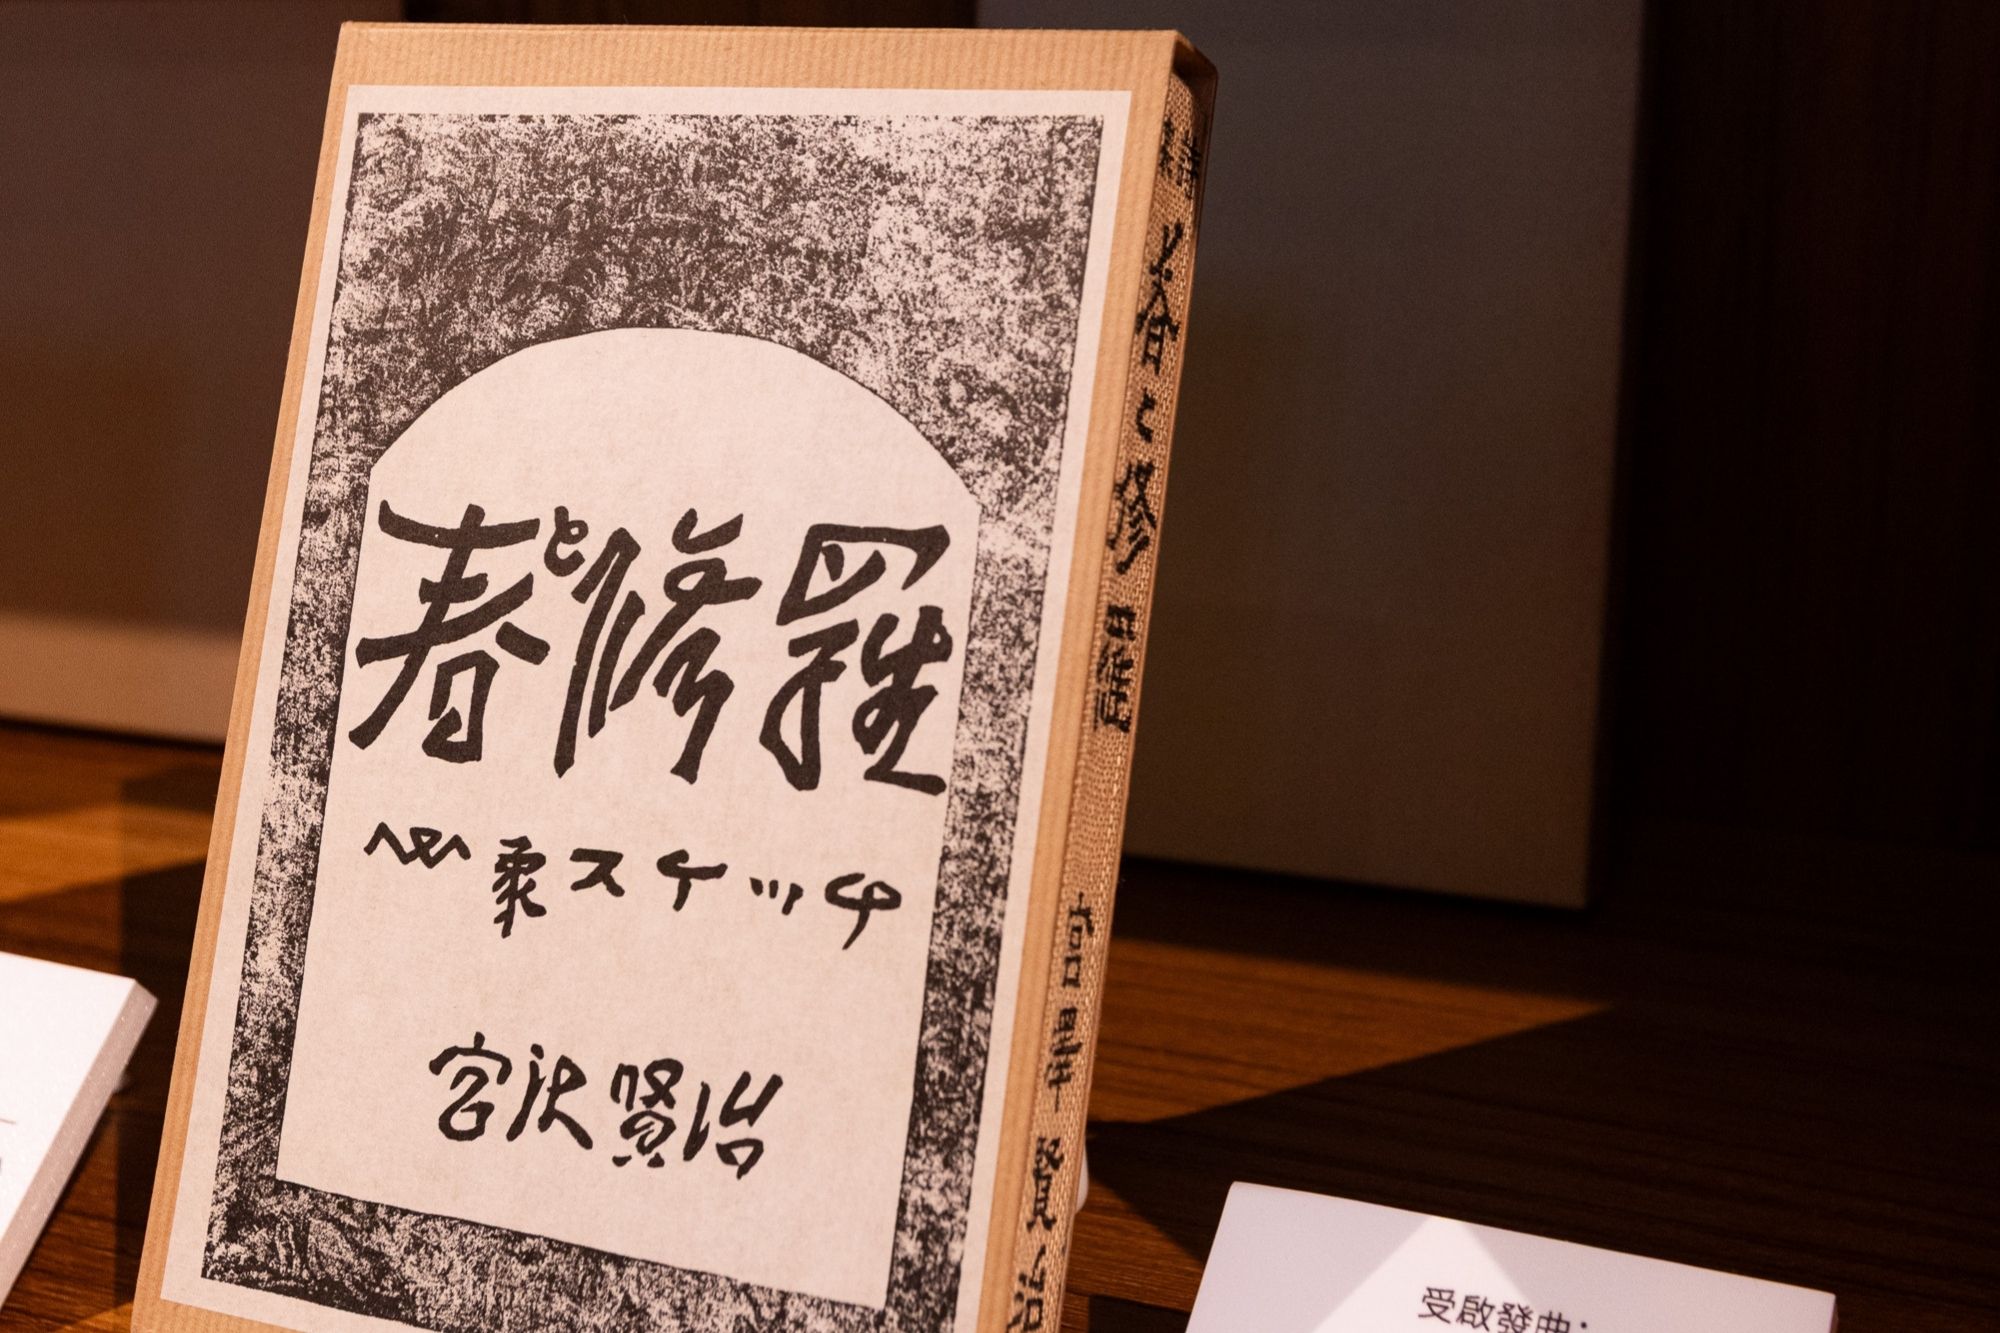 春と修羅
心象スケッチ
宮沢賢治
詩集 春と修羅
宮沢賢治
受啟發曲：